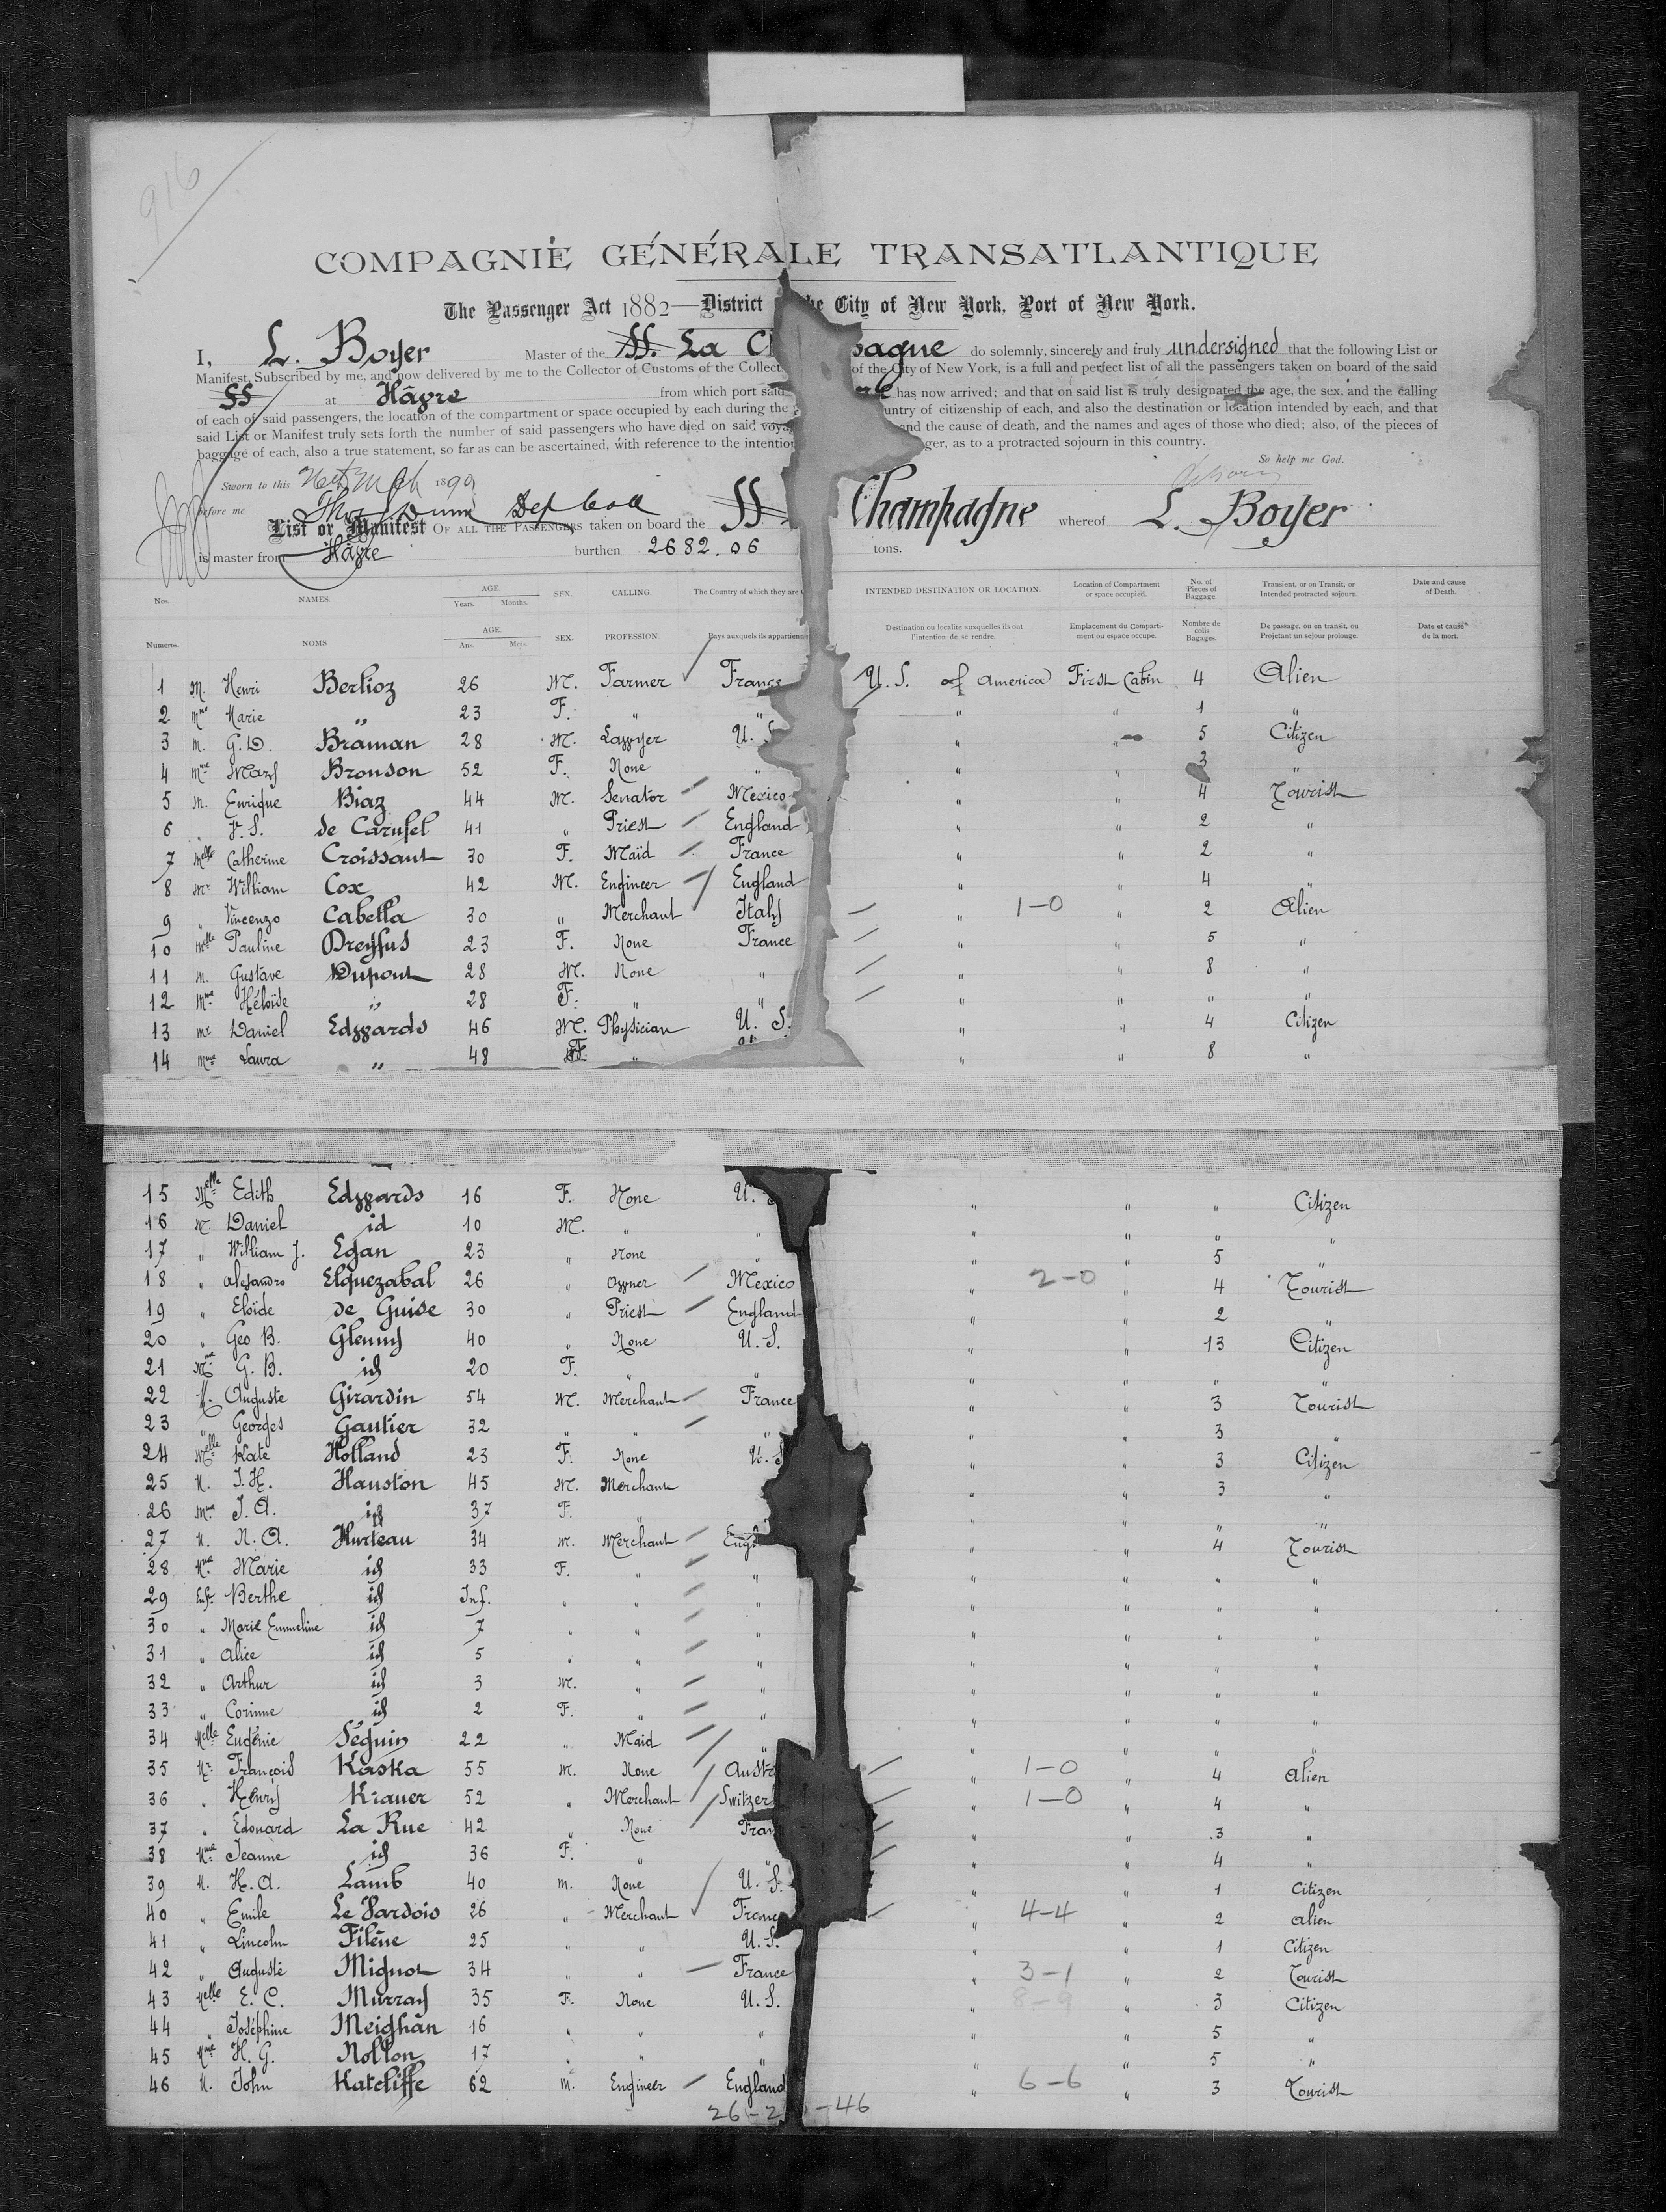 916
COMPAGNIE GÉNÉRALE TRANSATLANTIQUE
The Passenger Act 1882—District he City of New York, Port of New York.
I, L. Boyer Master of the SS. La Ch pagne do solemnly, sincerely and truly undersigned that the following List or
Manifest, Subscribed by me, and now delivered by me to the Collector of Customs of the Collect of the City of New York, is a full and perfect list of all the passengers taken on board of the said
SS at Hâvre from which port said has now arrived; and that on said list is truly designated the age, the sex, and the calling
of each of said passengers, the location of the compartment or space occupied by each during the untry of citizenship of each, and also the destination or location intended by each, and that
said List or Manifest truly sets forth the number of said passengers who have died on said voya and the cause of death, and the names and ages of those who died; also, of the pieces of
baggage of each, also a true statement, so far as can be ascertained, with reference to the intention ger, as to a protracted sojourn in this country.
So help me God.
Sworn to this 189
before me Dep Coll
List or Manifest OF ALL THE PASSENGERS taken on board the SS Champagne whereof L. Boyer
is master from Hâvre burthen 2682.06 tons.
Nos. NAMES. AGE. Years. Months. SEX. CALLING. The Country of which they are INTENDED DESTINATION OR LOCATION. Location of Compartment or space occupied. No. of Pieces of Baggage. Transient, or on Transit, or Intended protracted sojourn. Date and cause of Death.
Numeros. NOMS AGE. Ans. Mois. SEX. PROFESSION. Pays auxquels ils appartienne Destination ou localite auxquelles ils ont l'intention de se rendre. Emplacement du Compartiment ou espace occupe. Nombre de colis Bagages. De passage, ou en transit, ou Projetant un sejour prolonge. Date et cause de la mort.
1 M. Henri Berlioz 26 M. Farmer France U. S. of America First Cabin 4 Alien
2 Mme Marie " 23 F. " " " " 1 "
3 M. G. D. Braman 28 M. Lawyer U. S " " 5 Citizen
4 Mme Mary Bronson 52 F. None " " " 3 "
5 M. Enrique Biaz 44 M. Senator Mexico " " 4 Tourist
6 " V. S. de Carufel 41 " Priest England " " 2 "
7 Melle Catherine Croissant 30 F. Maid France " " 2 "
8 Mr William Cox 42 M. Engineer England " " 4 "
9 " Vincenzo Cabella 30 " Merchant Italy " 1-0 " 2 Alien
10 Melle Pauline Dreyfus 23 F. None France " " 5 "
11 M. Gustave Dupont 28 M. None " " " 8 "
12 Mme Héloïde " 28 F. " " " " " "
13 Mr Daniel Edwards 46 M. Physician U. S. " " 4 Citizen
14 Mme Laura " 48 F. " " " 8 "
15 Melle Edith Edwards 16 F. None U. " " " Citizen
16 M. Daniel id 10 M. " " " " " "
17 " William J. Egan 23 " None " " " 5 "
18 " Alejandro Elquezabal 26 " Owner Mexico " 2-0 " 4 Tourist
19 " Eloïde de Guise 30 " Priest England " " 2 "
20 " Geo B. Glenny 40 " None U. S. " " 13 Citizen
21 Mme G. B. id 20 F. " " " " "
22 M. Auguste Girardin 54 M. Merchant France " " 3 Tourist
23 " Georges Gautier 32 " " " " " 3 "
24 Melle Kate Holland 23 F. None U. S " " 3 Citizen
25 M. J. H. Hauston 45 M. Merchant " " 3 "
26 Mme J. A. id 37 F. " " " " "
27 M. N. A. Hurteau 34 M. Merchant Engl " " 4 Tourist
28 Mme Marie id 33 F. " " " " " "
29 Enft Berthe id Inf. " " " " " " "
30 " Marie Emmeline id 7 " " " " " " "
31 " Alice id 5 " " " " " " "
32 " Arthur id 3 M. " " " " " "
33 " Corinne id 2 F. " " " " " "
34 Melle Eugénie Séguin 22 " Maid " " " " "
35 Mr François Kaska 55 M. None Austr " 1-0 " 4 Alien
36 " Henry Krauer 52 " Merchant Switzer " 1-0 " 4 "
37 " Edouard La Rue 42 " None Fran " " 3 "
38 Mme Jeanne id 36 F. " " " " 4 "
39 M. H. A. Lamb 40 M. None U. S. " " 1 Citizen
40 " Emile Le Vardois 26 " Merchant France " 4-4 " 2 Alien
41 " Lincoln Filène 25 " " U. S. " " 1 Citizen
42 " Auguste Mignot 34 " " France " 3-1 " 2 Tourist
43 Melle E. C. Murray 35 F. None U. S. " 8-9 " 3 Citizen
44 " Joséphine Meighan 16 " " " " " 5 "
45 Mme H. G. Nollon 17 " " " " " 5 "
46 M. John Ratcliffe 62 M. Engineer England " 6-6 " 3 Tourist
26-2 -46